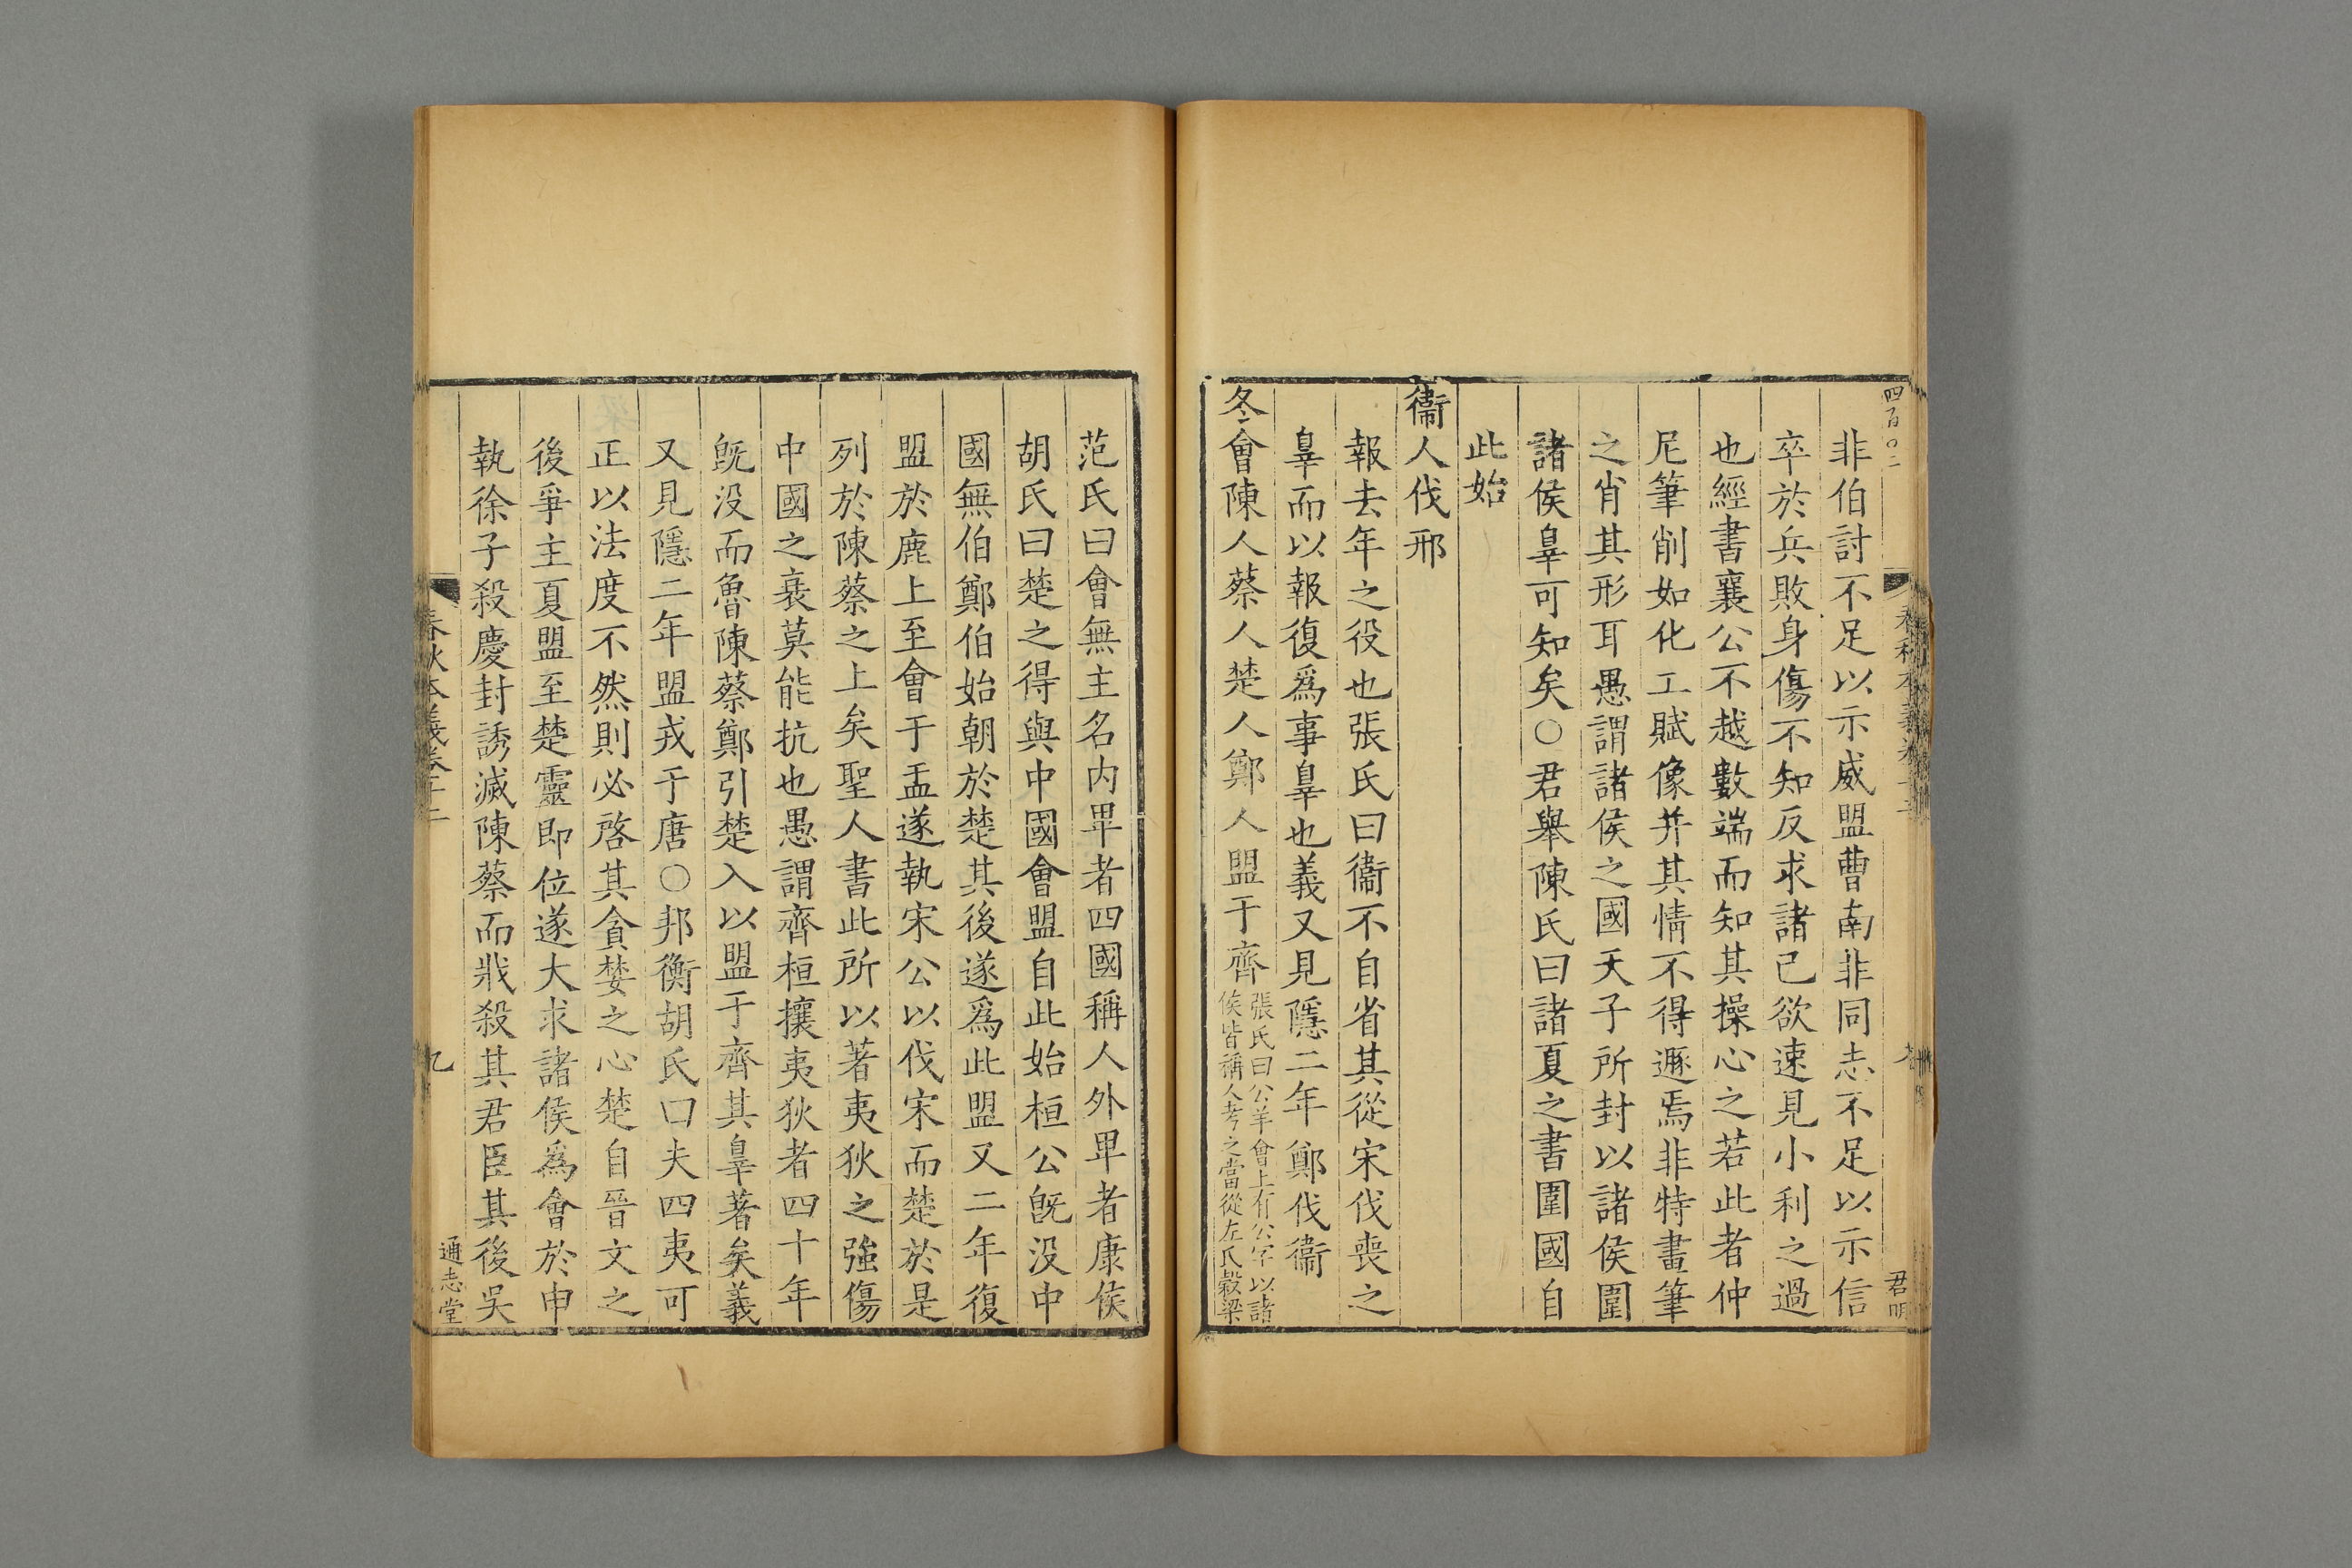 四百〇二
君明
非伯討不足以示威盟曹南非同志不足以示信
卒於兵敗身傷不知反求諸己欲速見小利之過
也經書襄公不越數端而知其操心之若此者仲
尼筆削如化工賦像并其情不得遯焉非特書筆
之肖其形耳愚謂諸侯之國天子所封以諸侯圍
諸侯辠可知矣○君舉陳氏曰諸夏之書圍國自
此始
衞人伐邢
報去年之役也張氏曰衞不自省其從宋伐喪之
辠而以報復爲事辠也義又見隱二年鄭伐衞
冬會陳人蔡人楚人鄭人盟于齊張氏曰公羊會上有公字以諸
侯皆稱人考之當從左氏穀梁
范氏曰會無主名内卑者四國稱人外卑者康侯
胡氏曰楚之得與中國會盟自此始桓公旣没中
國無伯鄭伯始朝於楚其後遂爲此盟又二年復
盟於鹿上至會于盂遂執宋公以伐宋而楚於是
列於陳蔡之上矣聖人書此所以著夷狄之強傷
中國之衰莫能抗也愚謂齊桓攘夷狄者四十年
旣没而魯陳蔡鄭引楚入以盟于齊其辠著矣義
又見隱二年盟戎于唐○邦衡胡氏曰夫四夷可
正以法度不然則必啓其貪婪之心楚自晉文之
後爭主夏盟至楚靈即位遂大求諸侯爲會於申
執徐子殺慶封誘滅陳蔡而戕殺其君臣其後吳
春秋本義卷十二
九
通志堂